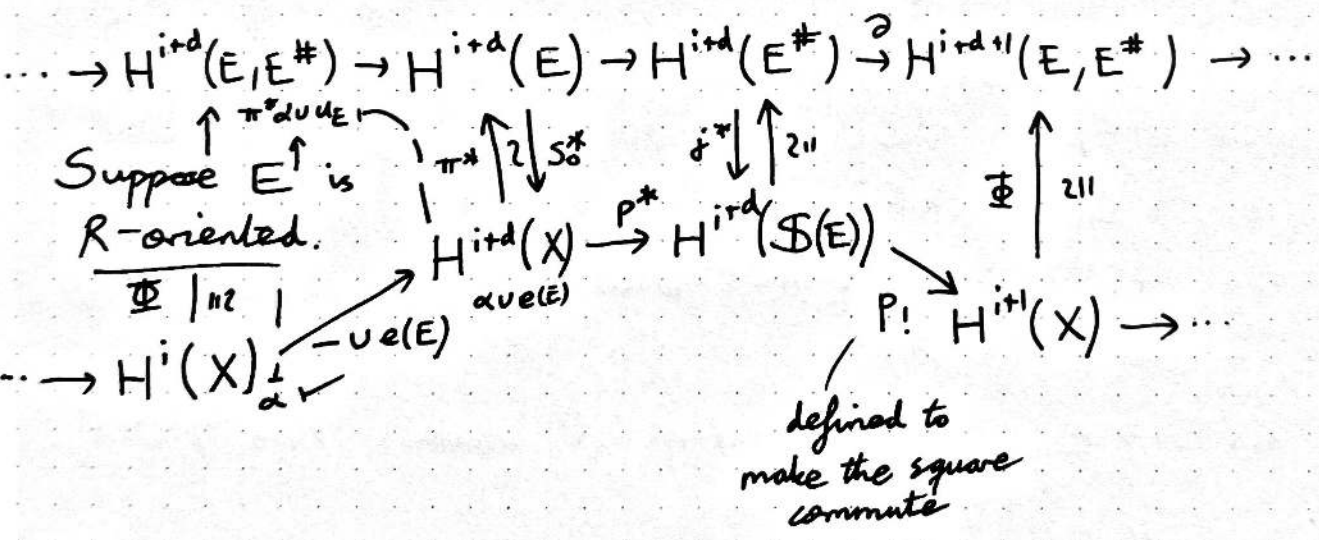 ··· → H^{i+d}(E, E^#) → H^{i+d}(E) → H^{i+d}(E^#) →^∂ H^{i+d+1}(E, E^#) → ···
↑ π*α∪u_E
Suppose E is π* ↑ ≀ ↓ s₀* j* ↓ ↑ ≀∥ Φ ↑ ≀∥
R-oriented.
H^{i+d}(X) →^{p*} H^{i+d}(𝕊(E))
Φ | ∥≀ α∪e(E) p! H^{i+1}(X) → ···
–∪e(E)
··· → H^i(X)
α
defined to
make the square
commute